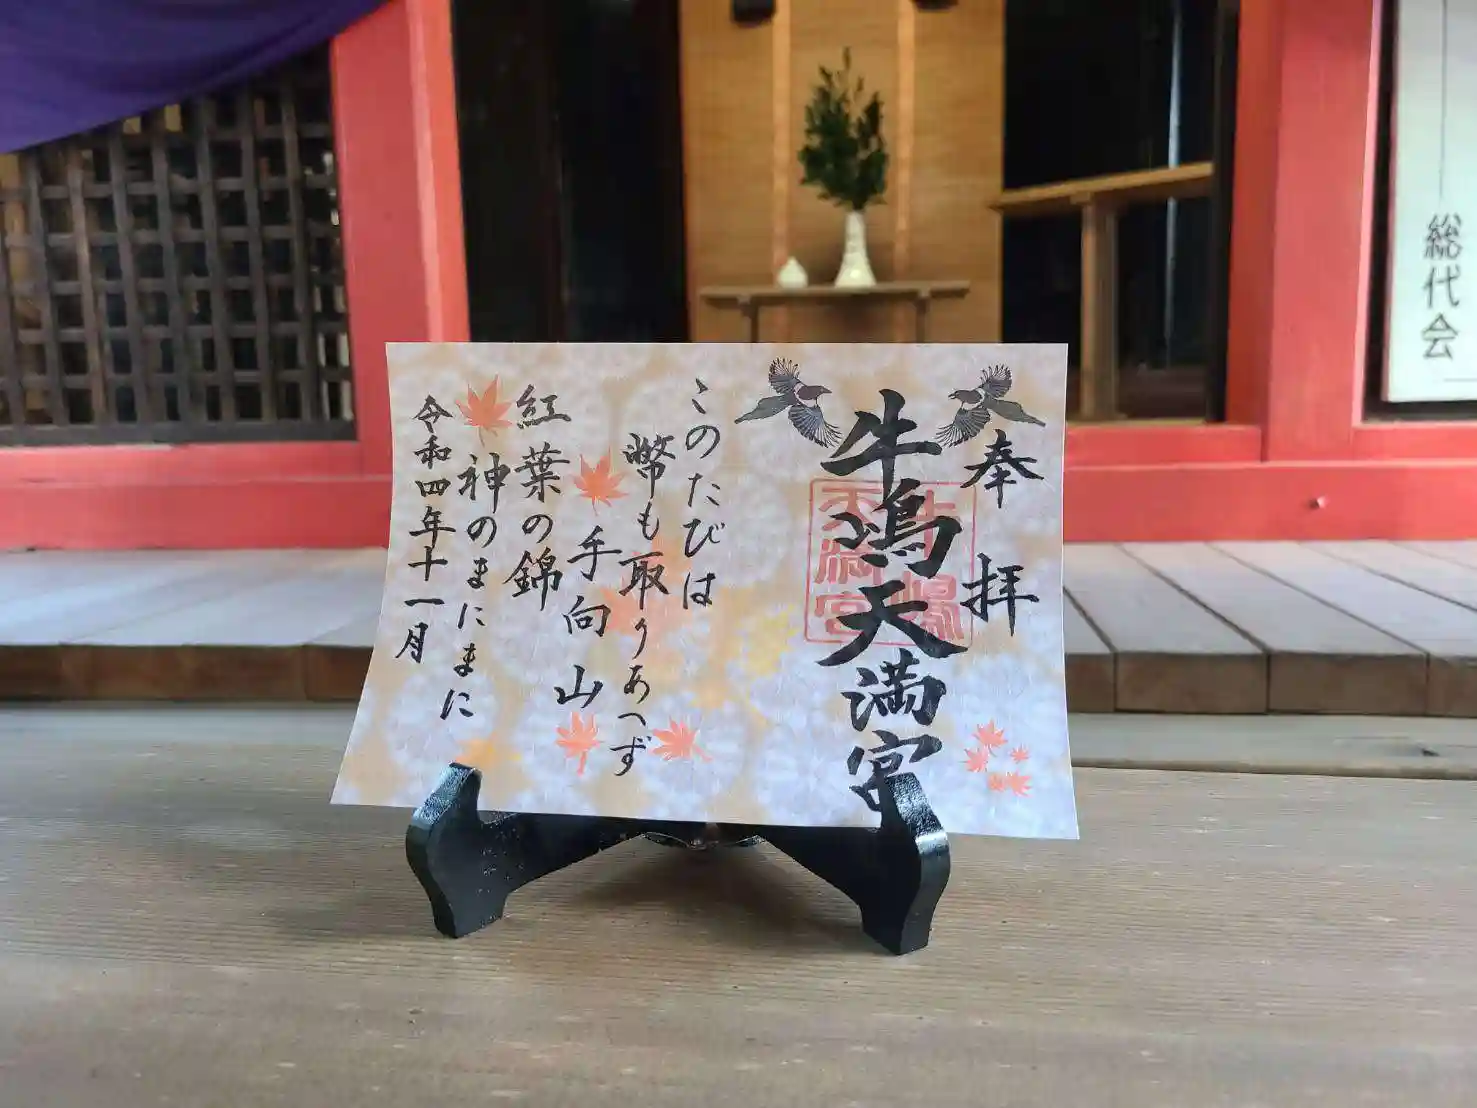 奉拝
牛嶋天満宮
牛嶋
天満宮
このたびは
幣も取りあへず
手向山
紅葉の錦
神のまにまに
令和四年十一月
総代会